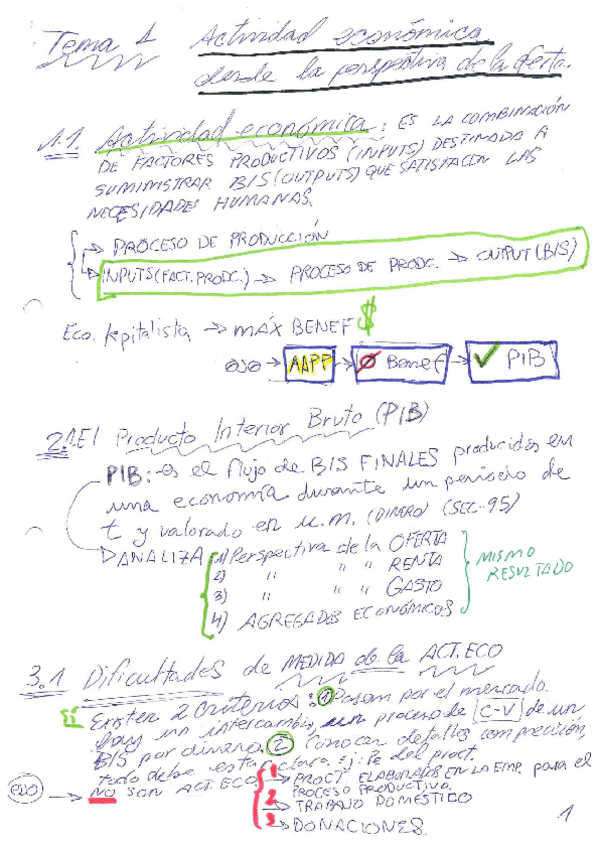 Tema 1 Actividad económica
desde la perspectiva de la oferta.
1.1. Actividad económica: ES LA COMBINACIÓN
DE FACTORES PRODUCTIVOS (INPUTS) DESTINADA A
SUMINISTRAR B/S (OUTPUTS) QUE SATISFACEN LAS
NECESIDADES HUMANAS.
→ PROCESO DE PRODUCCIÓN
→ INPUTS (FACT. PRODC.) → PROCESO DE PRODC. → OUTPUT (B/S)
Eco. kpitalista → MÁX BENEF $
OJO → AAPP → Ø Benef → ✓ PIB
2.1 El Producto Interior Bruto (PIB)
PIB: es el flujo de B/S FINALES producidos en
una economía durante un periodo de
t y valorado en u.m. (DINERO) (SEC-95)
→ ANALIZA 1) Perspectiva de la OFERTA
2) " " " RENTA
3) " " " GASTO
4) AGREGADOS ECONÓMICOS
MISMO
RESULTADO
3.1 Dificultades de MEDIDA de la ACT. ECO
Sí Existen 2 criterios: ① Pasan por el mercado.
hay un intercambio, un proceso de C-V de un
B/S por dinero. ② Conocer detalles con precisión,
todo debe estar claro. Ej: Pe del proct.
OJO → NO SON ACT. ECO 1 → PROCT ELABORADOS EN LA EMP. para el
PROCESO PRODUCTIVO.
2 → TRABAJO DOMÉSTICO
3 → DONACIONES.
1